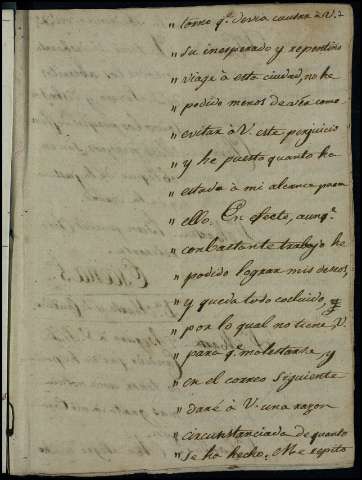 " torno q.e devia causar à V.
" Su inesperado y repentino
" viage à esta ciudad, no he
" podido menos de ver como
" evitar à V. este perjuicio
" y he puesto quanto ha
" estado à mi alcance para
" ello. En efecto, aunq.e
" con bastante trabajo he
" podido lograr mis deseos,
" y queda todo concluido,
" por lo qual no tiene V.
" para q.e molestarse, y
" en el correo siguiente
" daré à V. una razon
" circunstanciada de quanto
" se ha hecho. Me repito